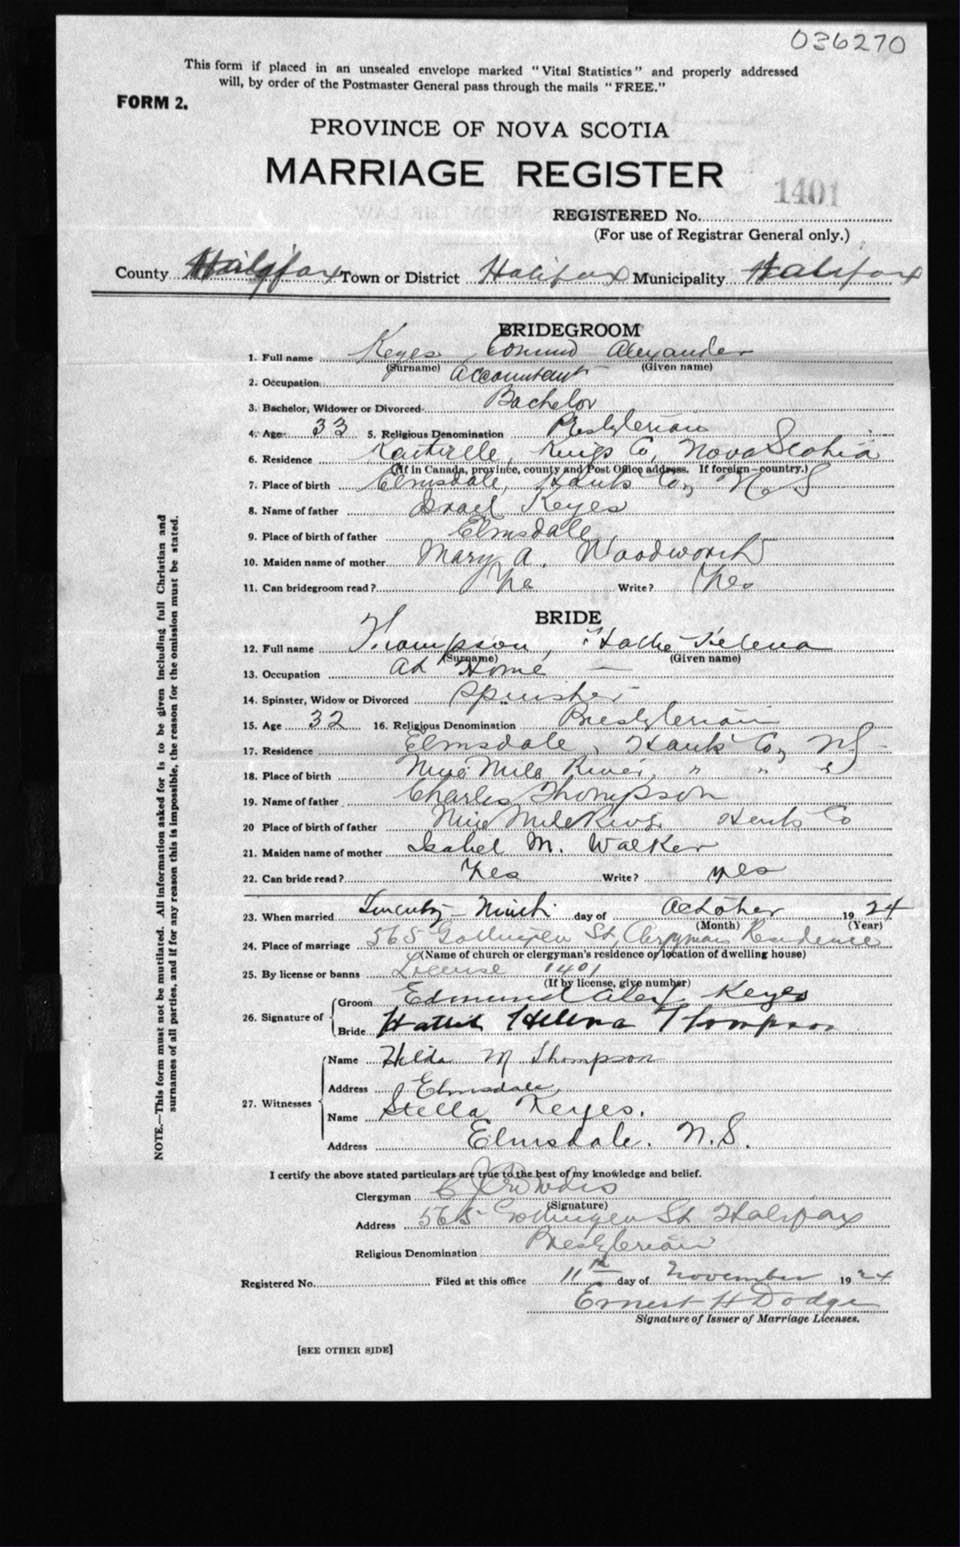 036270
This form if placed in an unsealed envelope marked "Vital Statistics" and properly addressed
will, by order of the Postmaster General pass through the mails "FREE."
FORM 2.
PROVINCE OF NOVA SCOTIA
MARRIAGE REGISTER
1401
REGISTERED No.
(For use of Registrar General only.)
County Halifax Town or District Halifax Municipality Halifax
BRIDEGROOM
1. Full name Keyes Edmund Alexander
(Surname) (Given name)
2. Occupation Accountant
3. Bachelor, Widower or Divorced Bachelor
4. Age 33 5. Religious Denomination Presbyterian
6. Residence Kings Co, Nova Scotia
(If in Canada, province, county and Post Office address. If foreign—country.)
7. Place of birth Elmsdale, Hants Co, N S
8. Name of father Israel Keyes
9. Place of birth of father Elmsdale
10. Maiden name of mother Mary A. Woodworth
11. Can bridegroom read? Yes Write? Yes
BRIDE
12. Full name Thompson, Hattie Helena
(Surname) (Given name)
13. Occupation At Home
14. Spinster, Widow or Divorced Spinster
15. Age 32 16. Religious Denomination Presbyterian
17. Residence Elmsdale, Hants Co, NS
18. Place of birth Nine Mile River, " " "
19. Name of father Charles Thompson
20 Place of birth of father Nine Mile River Hants Co
21. Maiden name of mother Isabel M. Walker
22. Can bride read? Yes Write? yes
23. When married Twenty-Ninth day of October 1924
(Month) (Year)
24. Place of marriage 565 Gottingen St, Clergymans Residence
(Name of church or clergyman's residence or location of dwelling house)
25. By license or banns License 1401
(If by license, give number)
26. Signature of Groom Edmund Alex. Keyes
Bride Hattie Helena Thompson
27. Witnesses Name Hilda M Thompson
Address Elmsdale,
Name Stella Keyes.
Address Elmsdale. N.S.
I certify the above stated particulars are true to the best of my knowledge and belief.
Clergyman
(Signature)
Address 565 Gottingen St Halifax
Religious Denomination Presbyterian
Registered No. Filed at this office 11th day of November 1924
Ernest H Dodge
Signature of Issuer of Marriage Licenses.
[SEE OTHER SIDE]
NOTE.—This form must not be mutilated. All information asked for is to be given including full Christian and
surnames of all parties, and if for any reason this is impossible, the reason for the omission must be stated.